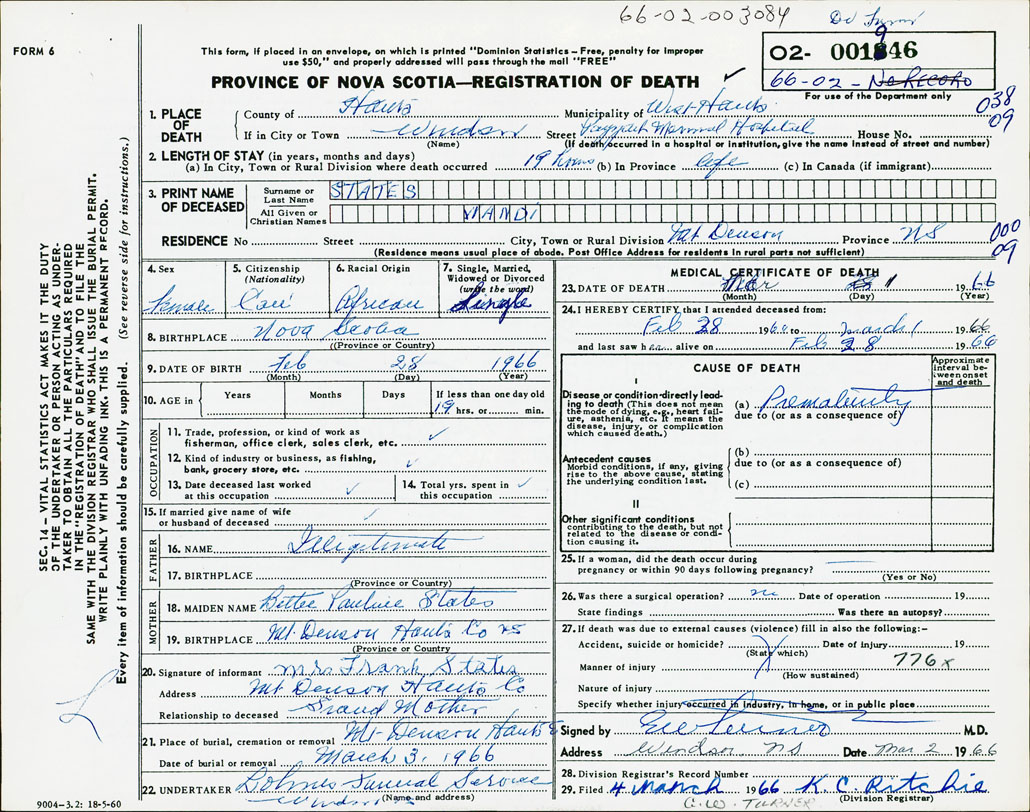 66-02-003084
FORM 6
This form, if placed in an envelope, on which is printed "Dominion Statistics – Free, penalty for improper
use $50," and properly addressed will pass through the mail "FREE"
02- 001846
9
66-02- No RECORD
For use of the Department only
PROVINCE OF NOVA SCOTIA—REGISTRATION OF DEATH ✓
038
09
1. PLACE OF DEATH
County of Hants Municipality of West Hants
If in City or Town Windsor Street Payzant Memorial Hospital House No.
(Name) (If death occurred in a hospital or institution, give the name instead of street and number)
2. LENGTH OF STAY (in years, months and days)
(a) In City, Town or Rural Division where death occurred 19 hours (b) In Province life (c) In Canada (if immigrant)
3. PRINT NAME OF DECEASED
Surname or Last Name STATES
All Given or Christian Names WANDI
RESIDENCE No Street City, Town or Rural Division Mt Denson Province NS
(Residence means usual place of abode. Post Office Address for residents in rural parts not sufficient)
000
09
4. Sex
Female
5. Citizenship
(Nationality)
Can
6. Racial Origin
African
7. Single, Married,
Widowed or Divorced
(write the word)
Single
8. BIRTHPLACE Nova Scotia
(Province or Country)
9. DATE OF BIRTH Feb 28 1966
(Month) (Day) (Year)
10. AGE in Years Months Days If less than one day old
19 hrs. or min.
OCCUPATION
11. Trade, profession, or kind of work as
fisherman, office clerk, sales clerk, etc. ✓
12. Kind of industry or business, as fishing,
bank, grocery store, etc. ✓
13. Date deceased last worked
at this occupation ✓
14. Total yrs. spent in
this occupation ✓
15. If married give name of wife
or husband of deceased ✓
FATHER
16. NAME Illegitimate
17. BIRTHPLACE
(Province or Country)
MOTHER
18. MAIDEN NAME Bettie Pauline States
19. BIRTHPLACE Mt. Denson Hants Co NS
(Province or Country)
20. Signature of informant Mrs Frank States
Address Mt Denson Hants Co
Relationship to deceased Grand Mother
21. Place of burial, cremation or removal Mt Denson Hants
Date of burial or removal March 3, 1966
22. UNDERTAKER Dohmes Funeral Service
Windsor
(Name and address)
MEDICAL CERTIFICATE OF DEATH
23. DATE OF DEATH Mar 1 1966
(Month) (Day) (Year)
24. I HEREBY CERTIFY that I attended deceased from:
Feb 28 1966 to March 1 1966
and last saw h alive on Feb 28 1966
CAUSE OF DEATH
Approximate
interval be-
tween onset
and death
I
Disease or condition directly lead-
ing to death (This does not mean
the mode of dying, e.g., heart fail-
ure, asthenia, etc. It means the
disease, injury, or complication
which caused death.)
(a) Prematurity
due to (or as a consequence of)
Antecedent causes
Morbid conditions, if any, giving
rise to the above cause, stating
the underlying condition last.
(b)
due to (or as a consequence of)
(c)
II
Other significant conditions
contributing to the death, but not
related to the disease or condi-
tion causing it.
25. If a woman, did the death occur during
pregnancy or within 90 days following pregnancy?
(Yes or No)
26. Was there a surgical operation? no Date of operation 19
State findings Was there an autopsy?
27. If death was due to external causes (violence) fill in also the following:–
Accident, suicide or homicide? Date of injury 19
(State which)
776x
Manner of injury
(How sustained)
Nature of injury
Specify whether injury occurred in industry, in home, or in public place
Signed by M.D.
Address Windsor, NS Date Mar 2 1966
28. Division Registrar's Record Number
29. Filed 4 March 1966 K. C. Ritchie
(Division Registrar)
C.W. TURNER
SEC. 14 – VITAL STATISTICS ACT MAKES IT THE DUTY
OF THE UNDERTAKER OR PERSON ACTING AS UNDER-
TAKER TO OBTAIN ALL THE PARTICULARS REQUIRED
IN THE "REGISTRATION OF DEATH" AND TO FILE THE
SAME WITH THE DIVISION REGISTRAR WHO SHALL ISSUE THE BURIAL PERMIT.
WRITE PLAINLY WITH UNFADING INK. THIS IS A PERMANENT RECORD.
Every item of information should be carefully supplied. (See reverse side for instructions.)
9004–3.2: 18-5-60